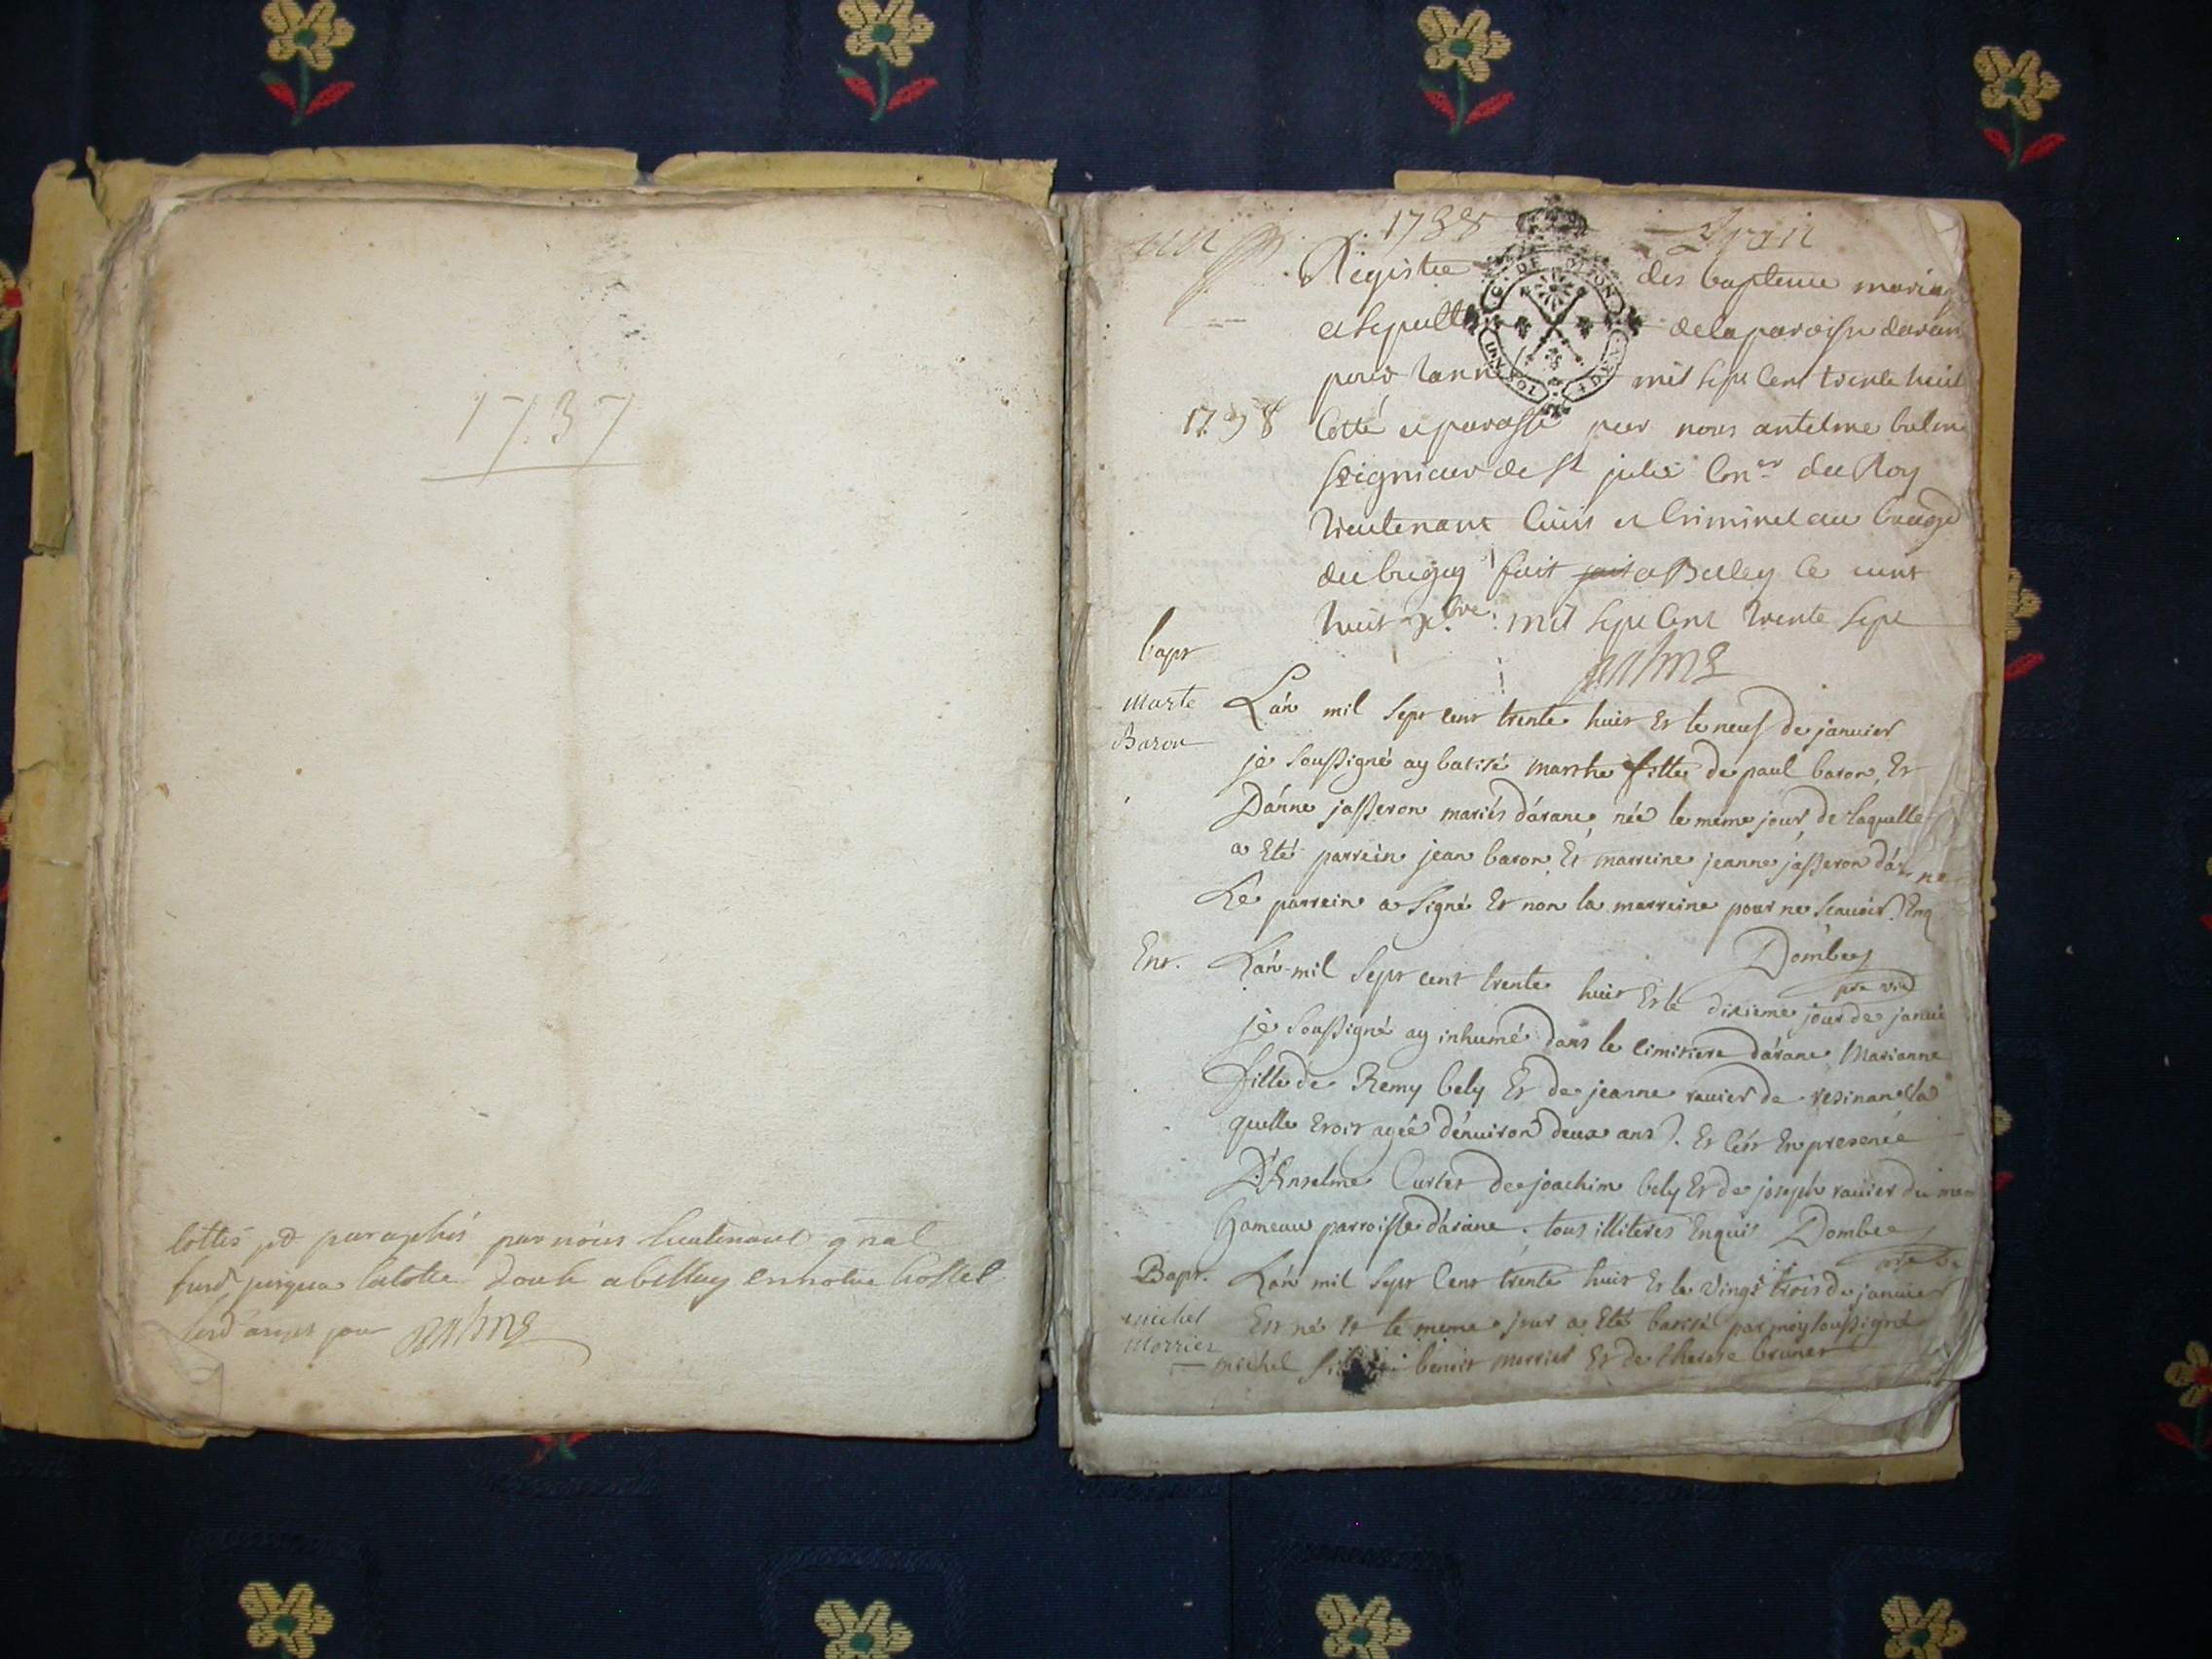 1737
cottés paraphés par nous lieutenant gnal
1738
Registre des bapteme mariag
et sepult de la paroisse daran
pour lann mil sept cent trente huit
1738
Cotté et paraffé par nous antelme balm
seigneur de st julie Coner du Roy
Lieutenant Civil et Criminel au
du bugey fait a Belley le vint
huit xbre mil sept cent trente sept
bapt
Marte
Baron
L'an mil sept cent trente huit Et le neuf de janvier
je soussigné ay batisé marthe fille de paul baron, Et
D'anne jasseron mariés d'arane, née le meme jour, de laquelle
a Eté parrein jean baron Et marreine jeanne jasseron d'arane
Le parrein a signé Et non la marreine pour ne scavoir. Enq
Dombey
Ent. L'an mil sept cent trente huit Et le dixieme jour de janvi
je soussigné ay inhumé dans le cimitiere d'arane, Marianne
fille de Remy bely Et de jeanne ravier de resinan la
quelle Etoit agée d'environ deux ans. Et c'est En presence
D'Anselme Curtet de joachim bely Et de joseph ravier du me
hameau parroisse d'arane. tous illiteres Enquis Dombey
Bapt.
michel
Morrier
L'an mil sept cent trente huit Et le vingt trois de janvier
Est né Et le meme jour a Eté batisé par moy soussigné
michel benoit morrier Et de therese brunet